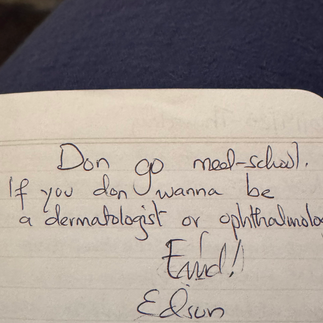 Don go med-school.
If you don wanna be
a dermatologist or ophthalmolo
End!
Edson